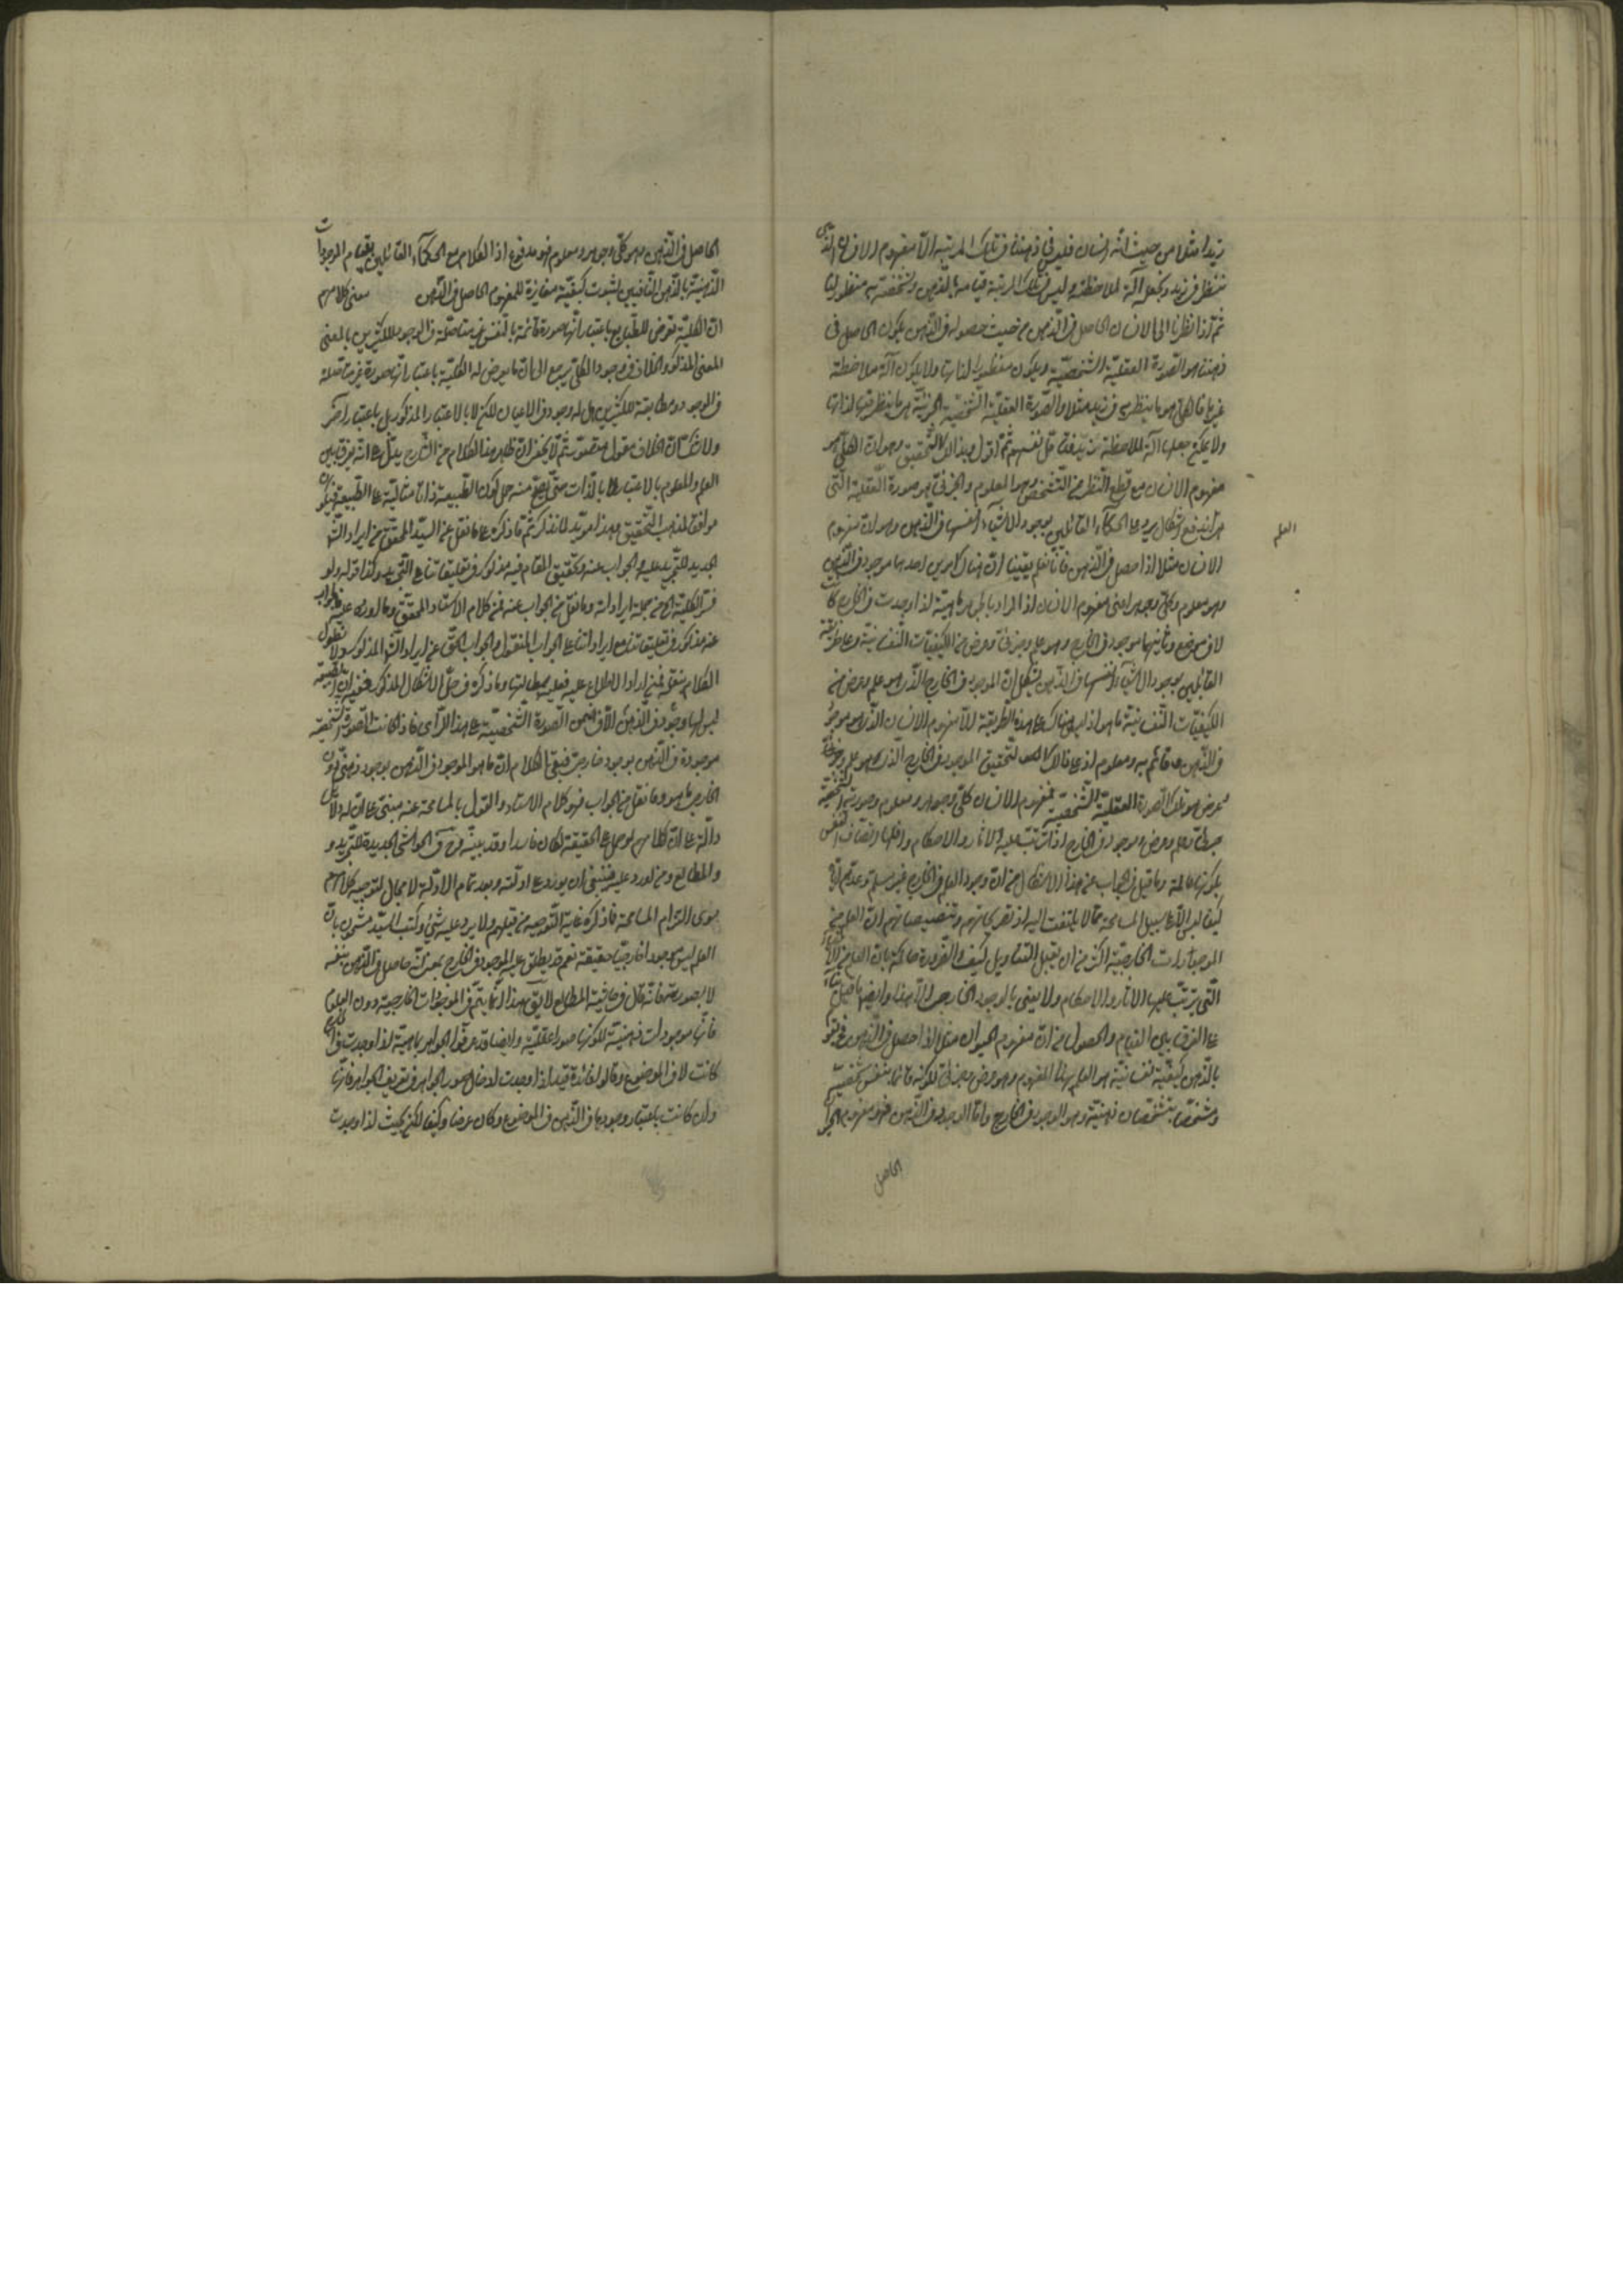 زيدا مثلا من حيث انه انسان فليس في ذهننا في تلك المرتبة الا مفهوم الانسان الذي
ننظر في زيد ونجعله آلة لملاحظته وليس في تلك المرتبة قيامه بالذهن وتشخصه به منظورا لنا
ثم اذا نظرنا الى الانسان الحاصل في الذهن من حيث حصوله في الذهن يكون الحاصل في
ذهننا هو الصورة العقلية الشخصية ويكون منظورا لذاتها ولا يكون آلة ملاحظة
غيرها فالكلي هو ما ينظر به في زيد مثلا والصورة العقلية الشخصية الجزئية هو ما ينظر فيها لذاتها
ولا يمكن جعلها آلة لملاحظة زيد ثم اقول وبذلك التحقيق وهو ان الكلي هو
مفهوم الانسان مع قطع النظر عن التشخص وهو المعلوم والجزئي هو صورة العقلية التي
اندفع اشكال يرد على الحكماء القائلين بوجود الاشياء انفسها في الذهن وهو ان مفهوم
العلم
الانسان مثلا اذا حصل في الذهن فانا نعلم يقينا ان هناك امرين احدهما موجود في الذهن
وهو معلوم وكلي وجوهر اعني مفهوم الانسان اذ المراد بالجوهر ماهية اذا وجدت في الخارج كانت
لا في موضوع وثانيهما موجود في الخارج وهو علم وجزئي وعرض من الكيفيات النفسانية وعلى طريقة
القائلين بوجود الاشياء انفسها في الذهن يشكل ان الموجود في الخارج الذي هو علم وعرض من
الكيفيات النفسانية ما هو اذ ليس هناك على هذه الطريقة الا مفهوم الانسان الذي هو موجود
في الذهن وقائم به ومعلوم اذ على ذلك التحقيق الموجود في الخارج الذي هو علم وجزئي
وعرض هو تلك الصورة العقلية الشخصية فمفهوم الانسان كلي وجوهر ومعلوم وصورته الشخصية
جزئي وعلم وعرض وموجود في الخارج اذ يترتب عليه الآثار والاحكام واقلها اتصاف النفس
بكونها عالمة وما قيل في الجواب عن هذا الاشكال من ان وجود العلم في الخارج غير مسلم وعدهم اياه
كيفا ليس الا على سبيل المسامحة مما لا يلتفت اليه اذ تصريحاتهم وتنصيصاتهم ان العلم من
الموجودات الخارجية اكثر من ان يقبل التأويل كيف والضرورة حاكمة بان العلم من الاشياء
التي يترتب عليها الآثار والاحكام ولا يعنى بالوجود الخارجي الا هذا وايضا ما قيل
على الفرق بين القيام والحصول من ان مفهوم الحيوان مثلا اذا حصل في الذهن
بالذهن كيفية نفسانية هو العلم بهذا المفهوم وهو عرض وجزئي لكونه قائما بنفس شخصية
ومتشخصا بتشخصات ذهنية وهو الموجود في الخارج واما الموجود في الذهن فهو مفهوم الحيوان
الحاصل
الحاصل في الذهن وهو كلي وجوهر ومعلوم فهو مدفوع اذ الكلام مع الحكماء القائلين بقيام الموجودات
الذهنية بالذهن النافين لثبوت كيفية مغايرة للمفهوم الحاصل في الذهن معنى كلامهم
ان الكلية تعرض للطبايع باعتبار انها صورة قائمة بالنفس غير متاصلة في الوجود للكثيرين بالمعنى
المعنى المذكور والخلاف في وجود الكلي يرجع الى ان ما يعرض له الكلية باعتبار انها صورة غير متاصلة
في الوجود ومطابقة للكثيرين هل له وجود في الاعيان لكن لا بالاعتبار المذكور بل باعتبار آخر
ولا شك ان الخلاف معقول متصور ثم لا يخفى ان ظاهر هذا الكلام من الشارح يدل على انه يفرق بين
العلم والمعلوم بالاعتبار لا بالذات حتى يصح منه حمل كون الطبيعة ذاتا مثالية على الطبيعة فيكون
موافقا لمذهب التحقيق وهذا مؤيد لما نذكر ثم ما ذكره على ما نقل عن السيد المحقق من ايراد الشارح
الجديد للتجريد عليه والجواب عنه وتحقيق المقام فيه مذكور في تعليقاتنا على التجريد وكذا قوله ولو
فسر الكلية الخ من جملة ايراداته وما نقل من الجواب عنه فمن كلام الاستاد المحقق وما اورد عليه والجواب
عنه مذكور في تعليقاتنا مع ايراداتنا على الجواب المنقول والجواب الحق عن ايراد الشارح المذكور ولا نطول
الكلام بنقله فمن اراد الاطلاع عليه فعليه بمطالعتها وما ذكره في حل الاشكال المذكور ففيه ان الطبيعة
ليس لها وجود في الذهن الا في ضمن الصورة الشخصية على هذا الرأي فاذا كانت الصورة الشخصية
موجودة في الذهن بوجود خارجي فبقي الكلام ان ما هو الموجود في الذهن بوجود ذهني دون
الخارجي ما هو وما نقل من الجواب فهو كلام الاستاد والقول بالمسامحة عنه مبني على ان له دلائل
دالة على ان كلامهم لو حمل على الحقيقة لكان فاسدا وقد بينه في الحواشي الجديدة للتجريد و
والمطالع ومن اورد عليه فينبغي ان يورد على ادلته وبعد تمام الادلة لا مجال لتوجيه كلامهم
سوى التزام المسامحة فما ذكره غاية التوجيه من قبلهم ولا يرد عليه شيء وكتب السيد مشحون بان
العلم ليس موجودا خارجيا حقيقة نعم قد يطلق عليه الموجود في الخارج بمعنى انه حاصل في الذهن بنفسه
لا بصورته فانه قال في حاشية المطالع لا يق هذا انما يتم في الموجودات الخارجية دون العلوم
فانها موجودات ذهنية لكونها صورا عقلية وايضا قد عرفوا الجواهر بماهية اذا وجدت في الخارج
كانت لا في الموضوع وقالوا فائدة قيد اذا وجدت ادخال صور الجواهر في تعريف الجواهر فانها
وان كانت باعتبار وجودها في الذهن في الموضوع وكان عرضا وكيفا لكن بحيث اذا وجدت